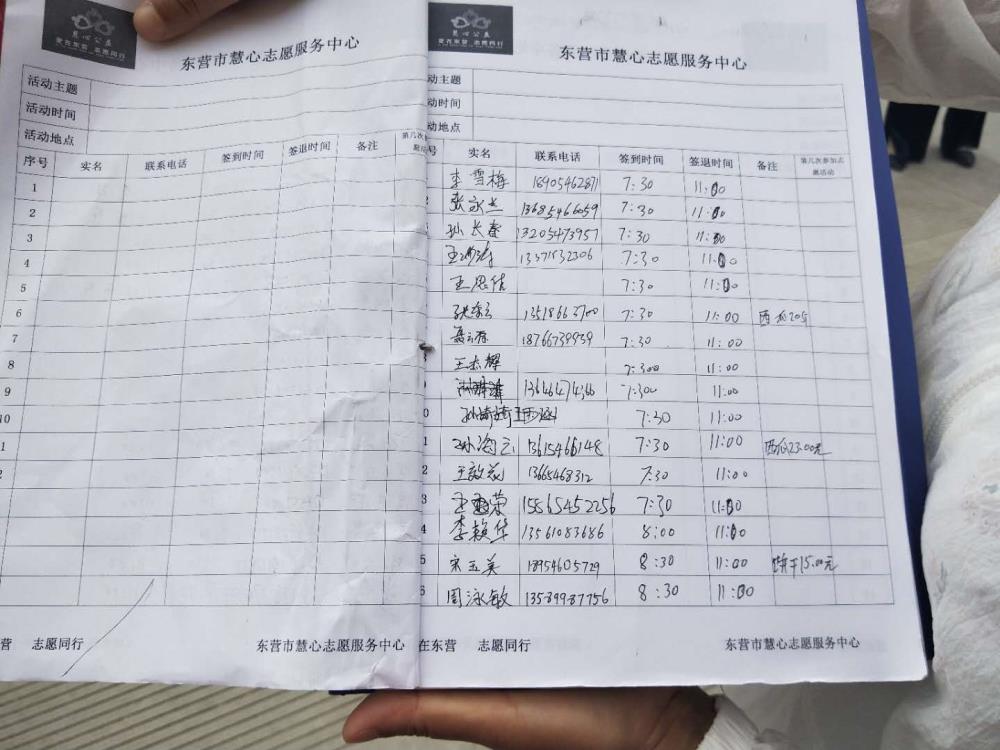 慧心公益
爱在东营 志愿同行
东营市慧心志愿服务中心
活动主题
活动时间
活动地点
序号 实名 联系电话 签到时间 签退时间 备注 第几次
1
2
3
4
5
6
7
8
9
10
1
2
营 志愿同行
东营市慧心志愿服务中心
慧心公益
爱在东营 志愿同行
东营市慧心志愿服务中心
动主题
动时间
动地点
号 实名 联系电话 签到时间 签退时间 备注 第几次参加志愿活动
李雪梅 18905462871 7:30 11:00
张永杰 13685466059 7:30 11:00
孙长春 13205473957 7:30 11:00
7:30 11:00
王思佳 7:30 11:00
7:30 11:00
18766739959 7:30 11:00
王志辉 7:300 11:00
7:300 11:00
0 7:30 11:00
1 13615466148 7:30 11:00 西瓜23.00元
2 13665468312 7:30 11:00
3 15865452256 7:30 11:00
4 李颖华 13561083686 8:00 11:00
5 宋玉美 18954605729 8:30 11:00 饼干15.00元
6 周泳敏 13589987756 8:30 11:00
在东营 志愿同行
东营市慧心志愿服务中心